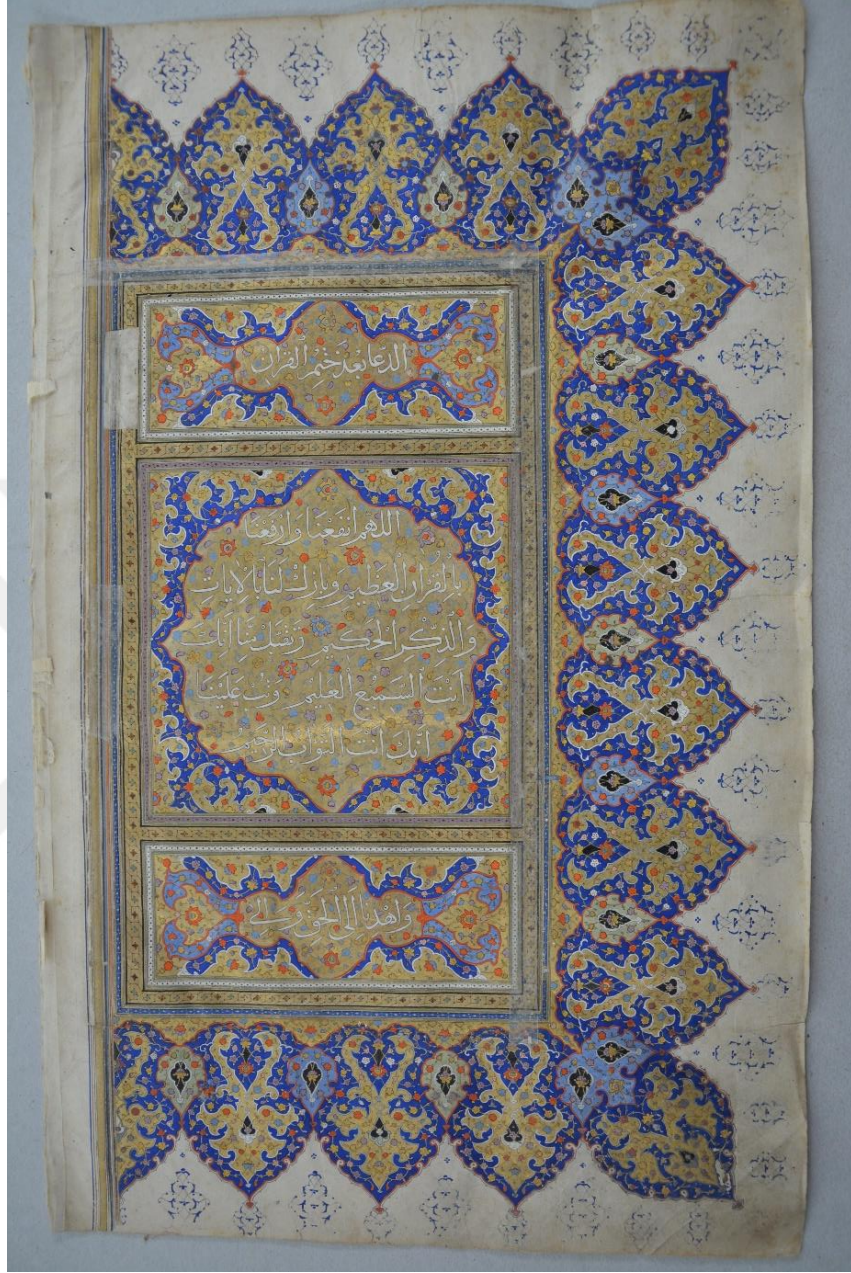 الدعا بعد ختم القران
اللهم انفعنا وارفعنا
بالقران العظيم وبارك لنا بالايات
والذكر الحكيم وتقبل منا انك
انت السميع العليم وتب علينا
انك انت التواب الرحيم
واهدنا الى الحق والى